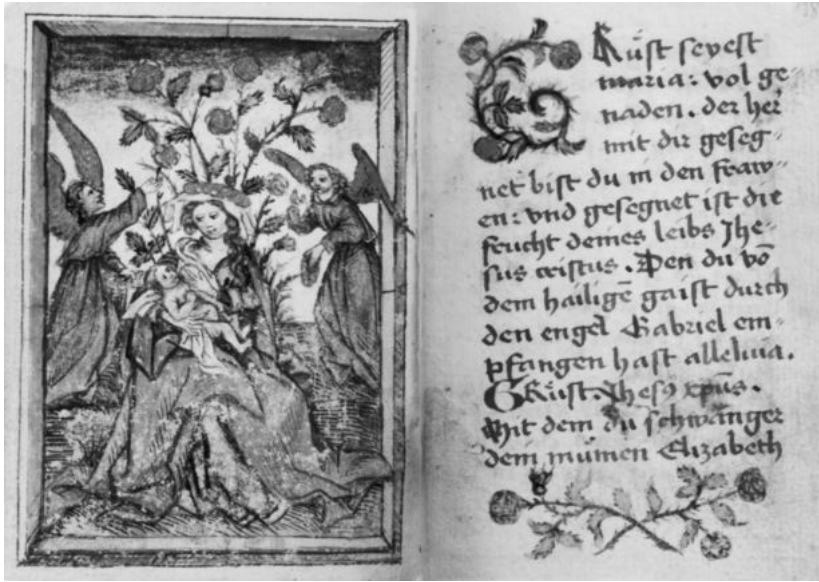 GRuͤst seyest
maria: vol ge-
naden. der her
mit dir geseg-
net bist du in den fraw-
en: vnd gesegnet ist die
frucht deines leibs Jhe-
sus cristus. Den du võ
dem hailigẽ gaist durch
den engel Gabriel em-
pfangen hast alleluia.
GRuͤst. Jhesꝯ xp̃us.
Mit dem du schwanger
dein muͤmen Elizabeth